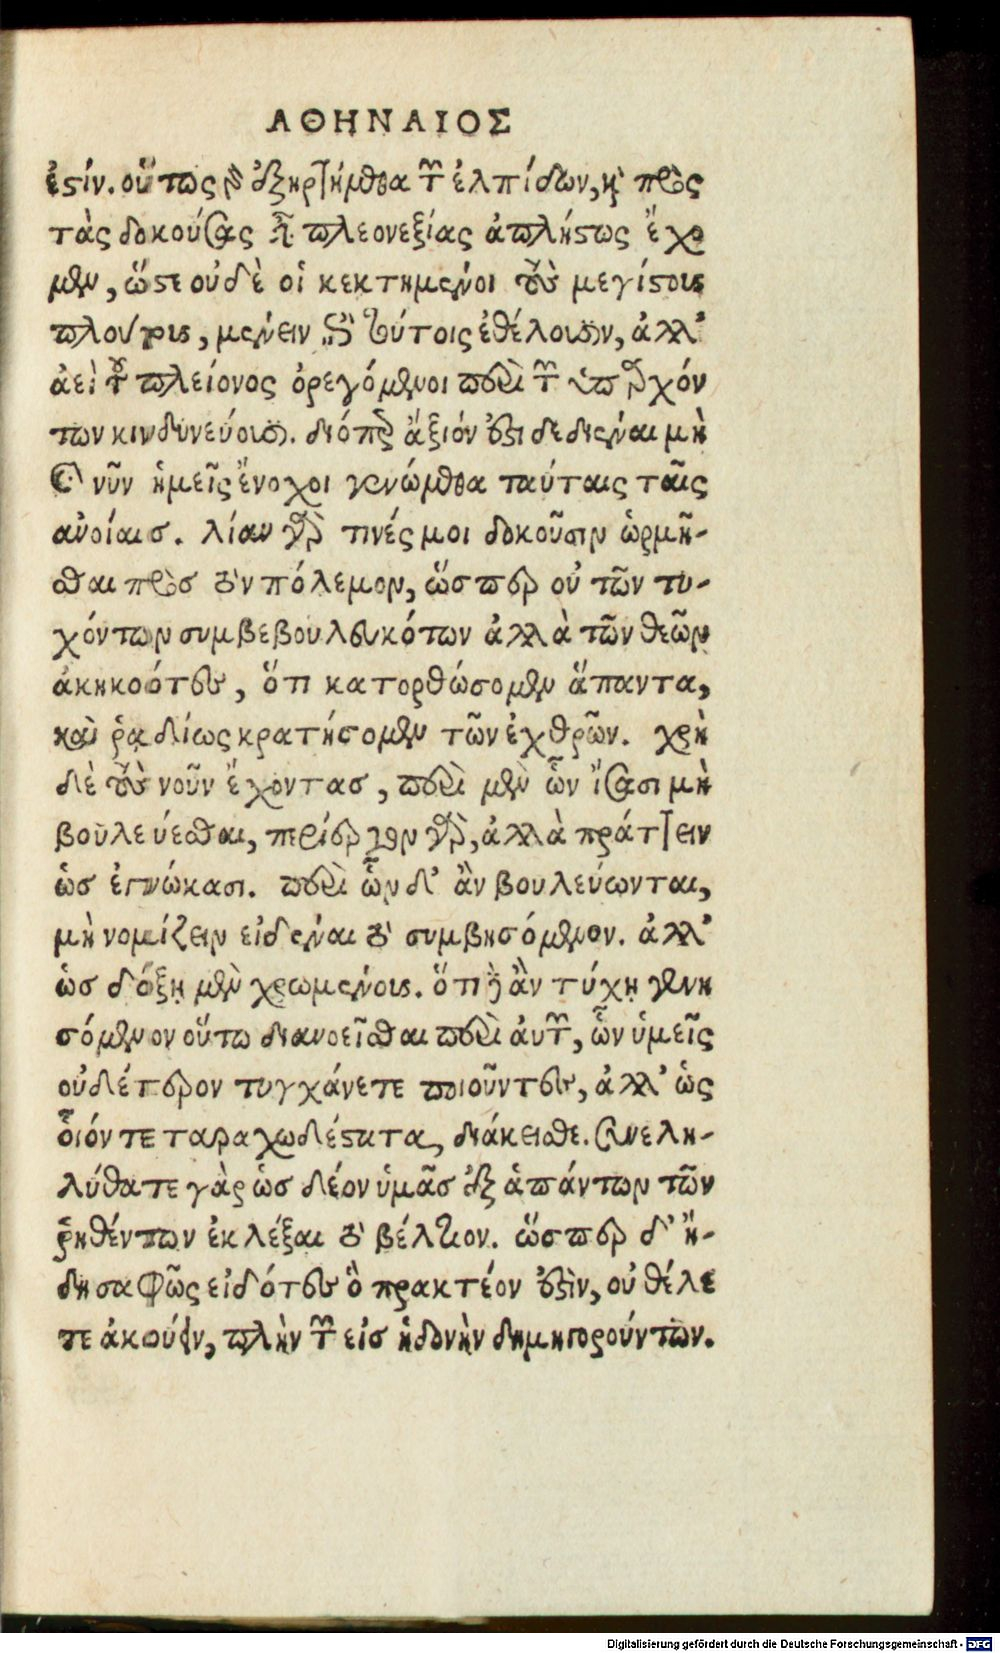 ΑΘΗΝΑΙΟΣ
ἐστίν. οὕτως γὰρ ἐξηρτήμεθα τῶν ἐλπίδων, καὶ πρὸς
τὰς δοκούσας εἶναι πλεονεξίας ἀπλήστως ἔχο
μεν, ὥστε οὐδὲ οἱ κεκτημένοι τοὺς μεγίστους
πλούτους, μένειν ἐπὶ τούτοις ἐθέλουσιν, ἀλλ'
ἀεὶ τοῦ πλείονος ὀρεγόμενοι περὶ τῶν ὑπαρχόν
των κινδυνεύουσι. διόπερ ἄξιόν ἐστι δεδιέναι μὴ
καὶ νῦν ἡμεῖς ἔνοχοι γενώμεθα ταύταις ταῖς
ἀνοίαις. λίαν γάρ τινές μοι δοκοῦσιν ὡρμῆ-
σθαι πρὸς τὸν πόλεμον, ὥσπερ οὐ τῶν τυ-
χόντων συμβεβουλευκότων ἀλλὰ τῶν θεῶν
ἀκηκοότες, ὅτι κατορθώσομεν ἅπαντα,
καὶ ῥᾳδίως κρατήσομεν τῶν ἐχθρῶν. χρὴ
δὲ τοὺς νοῦν ἔχοντας, περὶ μὲν ὧν ἴσασι μὴ
βουλεύεσθαι, περίεργον γὰρ, ἀλλὰ πράττειν
ὡς ἐγνώκασι. περὶ ὧν δ' ἂν βουλεύωνται,
μὴ νομίζειν εἰδέναι τὸ συμβησόμενον. ἀλλ'
ὡς δόξῃ μὲν χρωμένους. ὅτι δ' ἂν τύχῃ γενη
σόμενον οὕτω διανοεῖσθαι περὶ αὐτῶν, ὧν ὑμεῖς
οὐδέτερον τυγχάνετε ποιοῦντες, ἀλλ' ὡς
οἷόν τε ταραχωδέστατα, διάκεισθε. συνελη-
λύθατε γὰρ ὡς δέον ὑμᾶς ἐξ ἁπάντων τῶν
ῥηθέντων ἐκλέξαι τὸ βέλτιον. ὥσπερ δ' ἤ-
δη σαφῶς εἰδότες ὃ πρακτέον ἐστὶν, οὐ θέλε
τε ἀκούειν, πλὴν τῶν εἰς ἡδονὴν δημηγορούντων.
Digitalisierung gefördert durch die Deutsche Forschungsgemeinschaft - DFG